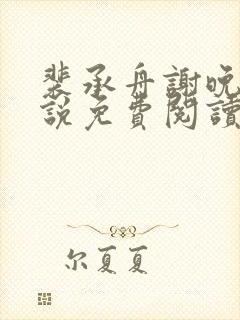 裴承舟謝晚
說免費閱讀
尔夏夏